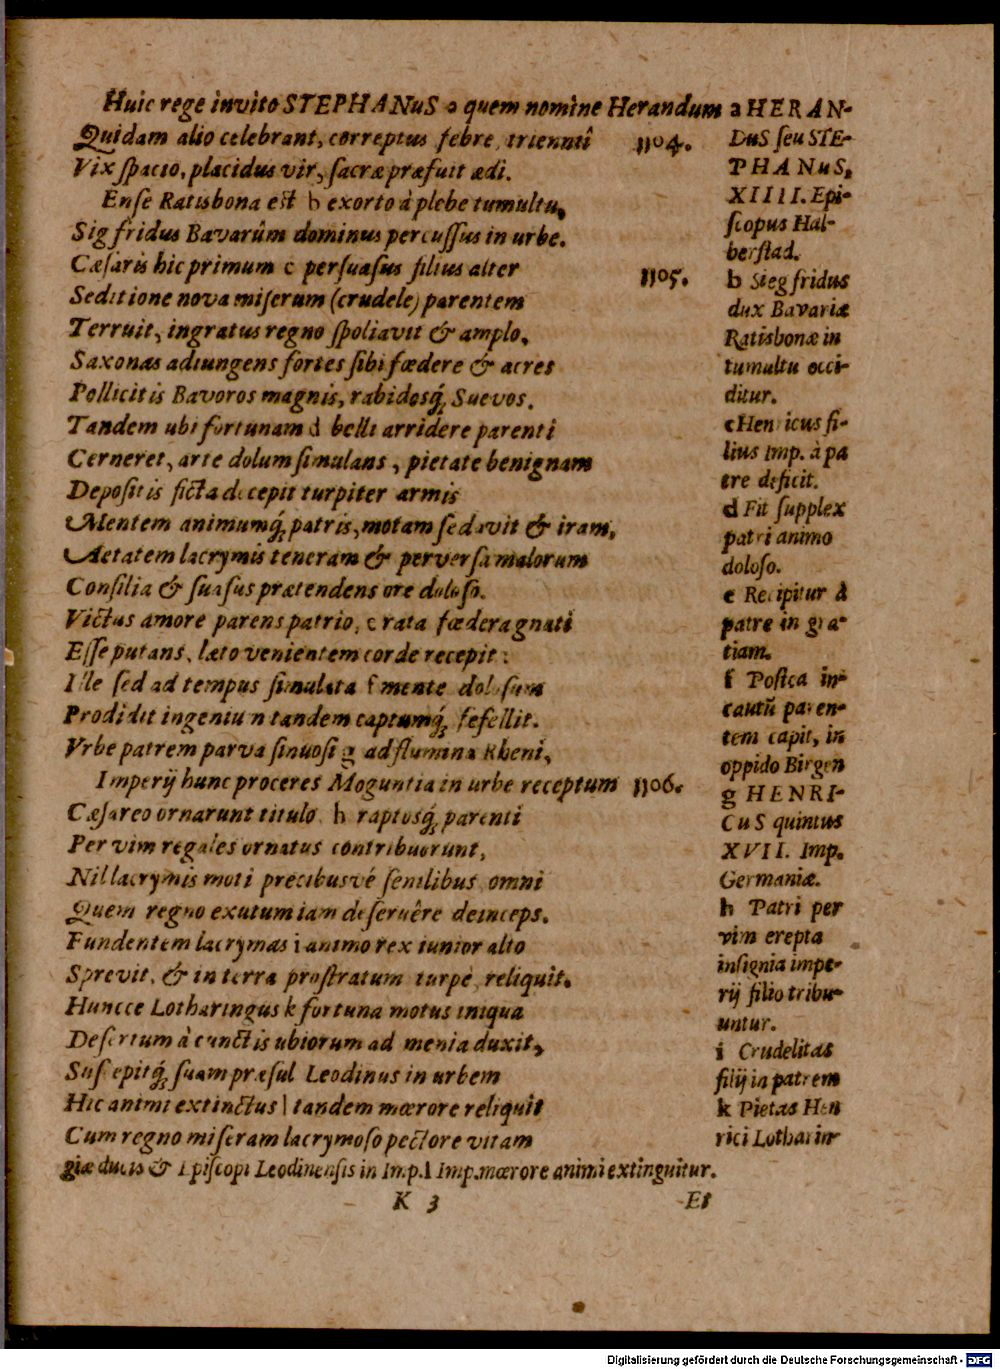 Huic rege invito STEPHANuS a quem nomine Herandum
Quidam alio celebrant, correptus febre, triennû 1104.
Vix spacio, placidus vir, sacræ præfuit ædi.
Ense Ratisbona est b exorto à plebe tumultu,
Sigfridus Bavarûm dominus percussus in urbe.
Cæsaris hic primum c persuasus filius alter 1105.
Seditione nova miserum (crudele) parentem
Terruit, ingratus regno spoliavit & amplo,
Saxonas adiungens fortes sibi fœdere & acres
Pollicitis Bavoros magnis, rabidosq́; Suevos.
Tandem ubi fortunam d belli arridere parenti
Cerneret, arte dolum simulans, pietate benignam
Depositis ficta decepit turpiter armis
Mentem animumq́; patris, motam sedavit & iram,
Aetatem lacrymis teneram & perversa malorum
Consilia & suasus prætendens ore doloso.
Victus amore parens patrio, e rata fœdera gnati
Esse putans, læto venientem corde recepit:
Ille sed ad tempus simulata f mente dolosum
Prodidit ingenium tandem captumq́; fefellit.
Vrbe patrem parva sinuosi g ad flumina Rheni,
Imperij hunc proceres Moguntia in urbe receptum 1106.
Cæsareo ornarunt titulo, h raptosq́; parenti
Per vim regales ornatus contribuorunt,
Nil lacrymis moti precibusvé senilibus, omni
Quem regno exutum iam deseruêre deinceps.
Fundentem lacrymas i animo rex iunior alto
Sprevit, & in terra prostratum turpè reliquit.
Huncce Lotharingus k fortuna motus iniqua
Desertum à cunctis ubiorum ad menia duxit,
Suscepitq́; suam præsul Leodinus in urbem
Hic animi extinctus l tandem mœrore reliquit
Cum regno miseram lacrymoso pectore vitam
a HERAN-
DuS seu STE-
PHANuS,
XIIII. Epi-
scopus Hal-
berstad.
b Siegfridus
dux Bavariæ
Ratisbonæ in
tumultu occi-
ditur.
c Henricus fi-
lius Imp. à pa
tre deficit.
d Fit supplex
patri animo
doloso.
e Recipitur à
patre in gra-
tiam.
f Postica in-
cautũ paren-
tem capit, in
oppido Birgen
g HENRI-
CuS quintus
XVII. Imp.
Germaniæ.
h Patri per
vim erepta
insignia impe-
rij filio tribu-
untur.
i Crudelitas
filij in patrem
k Pietas Hen
rici Lotharin-
giæ ducis & Episcopi Leodinensis in Imp. l Imp. mœrore animi extinguitur.
K 3 Et
Digitalisierung gefördert durch die Deutsche Forschungsgemeinschaft - DFG